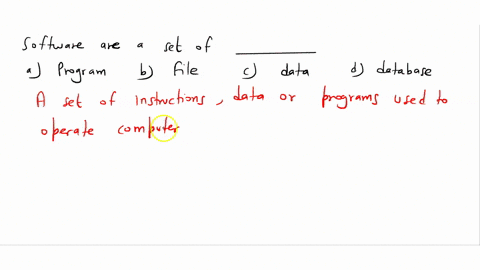 Software are a set of ________
a) Program b) File c) data d) database
A set of instructions, data or programs used to
operate computer